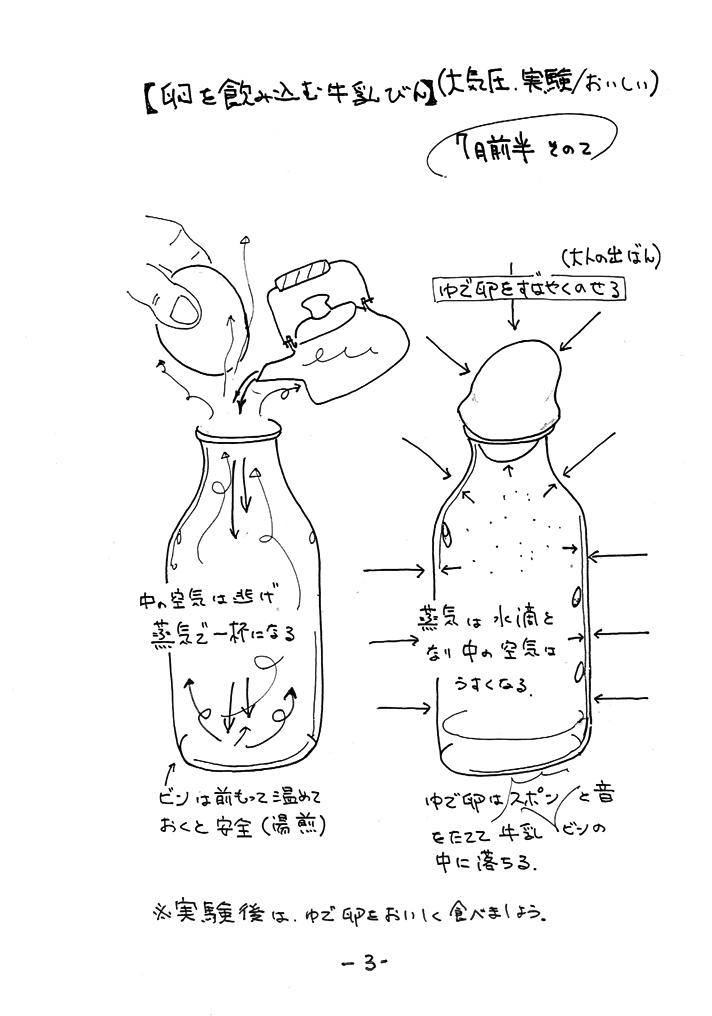 【卵を飲み込む牛乳びん】(大気圧．実験/おいしい)
7月前半 その2
(大人の出ばん)
ゆで卵をすばやくのせる
中の空気は逃げ
蒸気で一杯になる
蒸気は水滴と
なり中の空気は
うすくなる．
ビンは前もって温めて
おくと安全(湯煎)
ゆで卵はスポンと音
をたてて牛乳ビンの
中に落ちる．
※実験後は、ゆで卵をおいしく食べましょう。
-3-